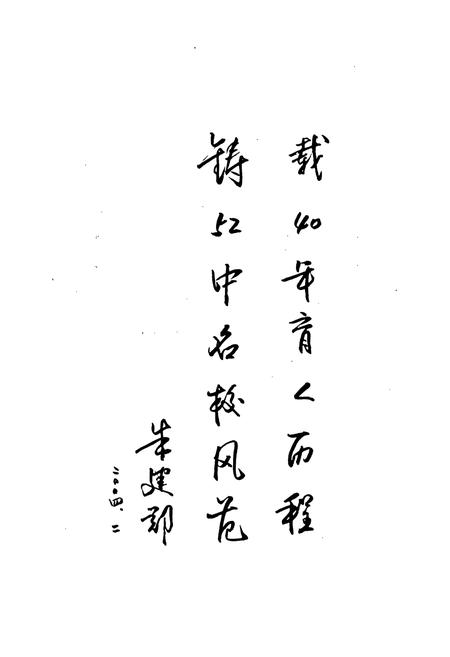 载40年育人历程
铸52中名校风范
朱建郡
二〇〇四.二